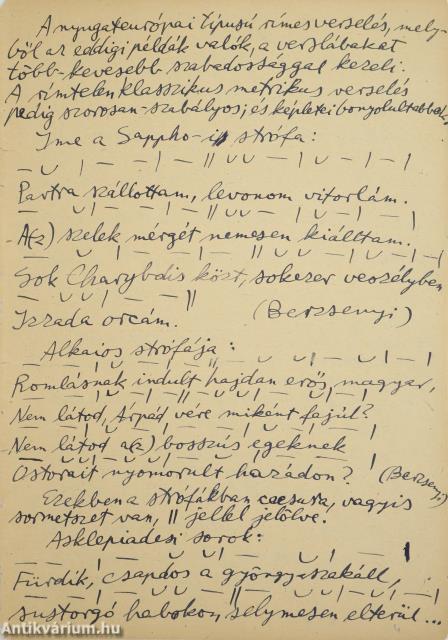 A nyugateurópai tipusú rímes verselés, mely-
ből az eddigi példák valók, a verslábakat
több-kevesebb szabadossággal kezeli.
A rímtelen klasszikus metrikus verselés
pedig szorosan-szabályos; és képletei bonyolultabbak.
Ime a Sappho-i strófa:
– ∪ | – – | – || ∪ ∪ | – ∪ | – – |
Partra szállottam, levonom vitorlám.
A(z) szelek mérgét nemesen kiálltam.
Sok Charybdis közt, sokezer veszélyben
Izzada orcám. (Berzsenyi)
Alkaios strófája:
Romlásnak indult hajdan erős magyar,
Nem látod, Árpád vére miként fajúl?
Nem látod a(z) bosszús egeknek
Ostorait nyomorult hazádon? (Berzsenyi)
Ezekben a strófákban caesura, vagyis
sormetszet van, || jellel jelölve.
Asklepiadesi sorok:
Fürdik, csapdos a gyöngyszakáll,
sustorgó habokon, selymesen elterül...
Antikvárium.hu